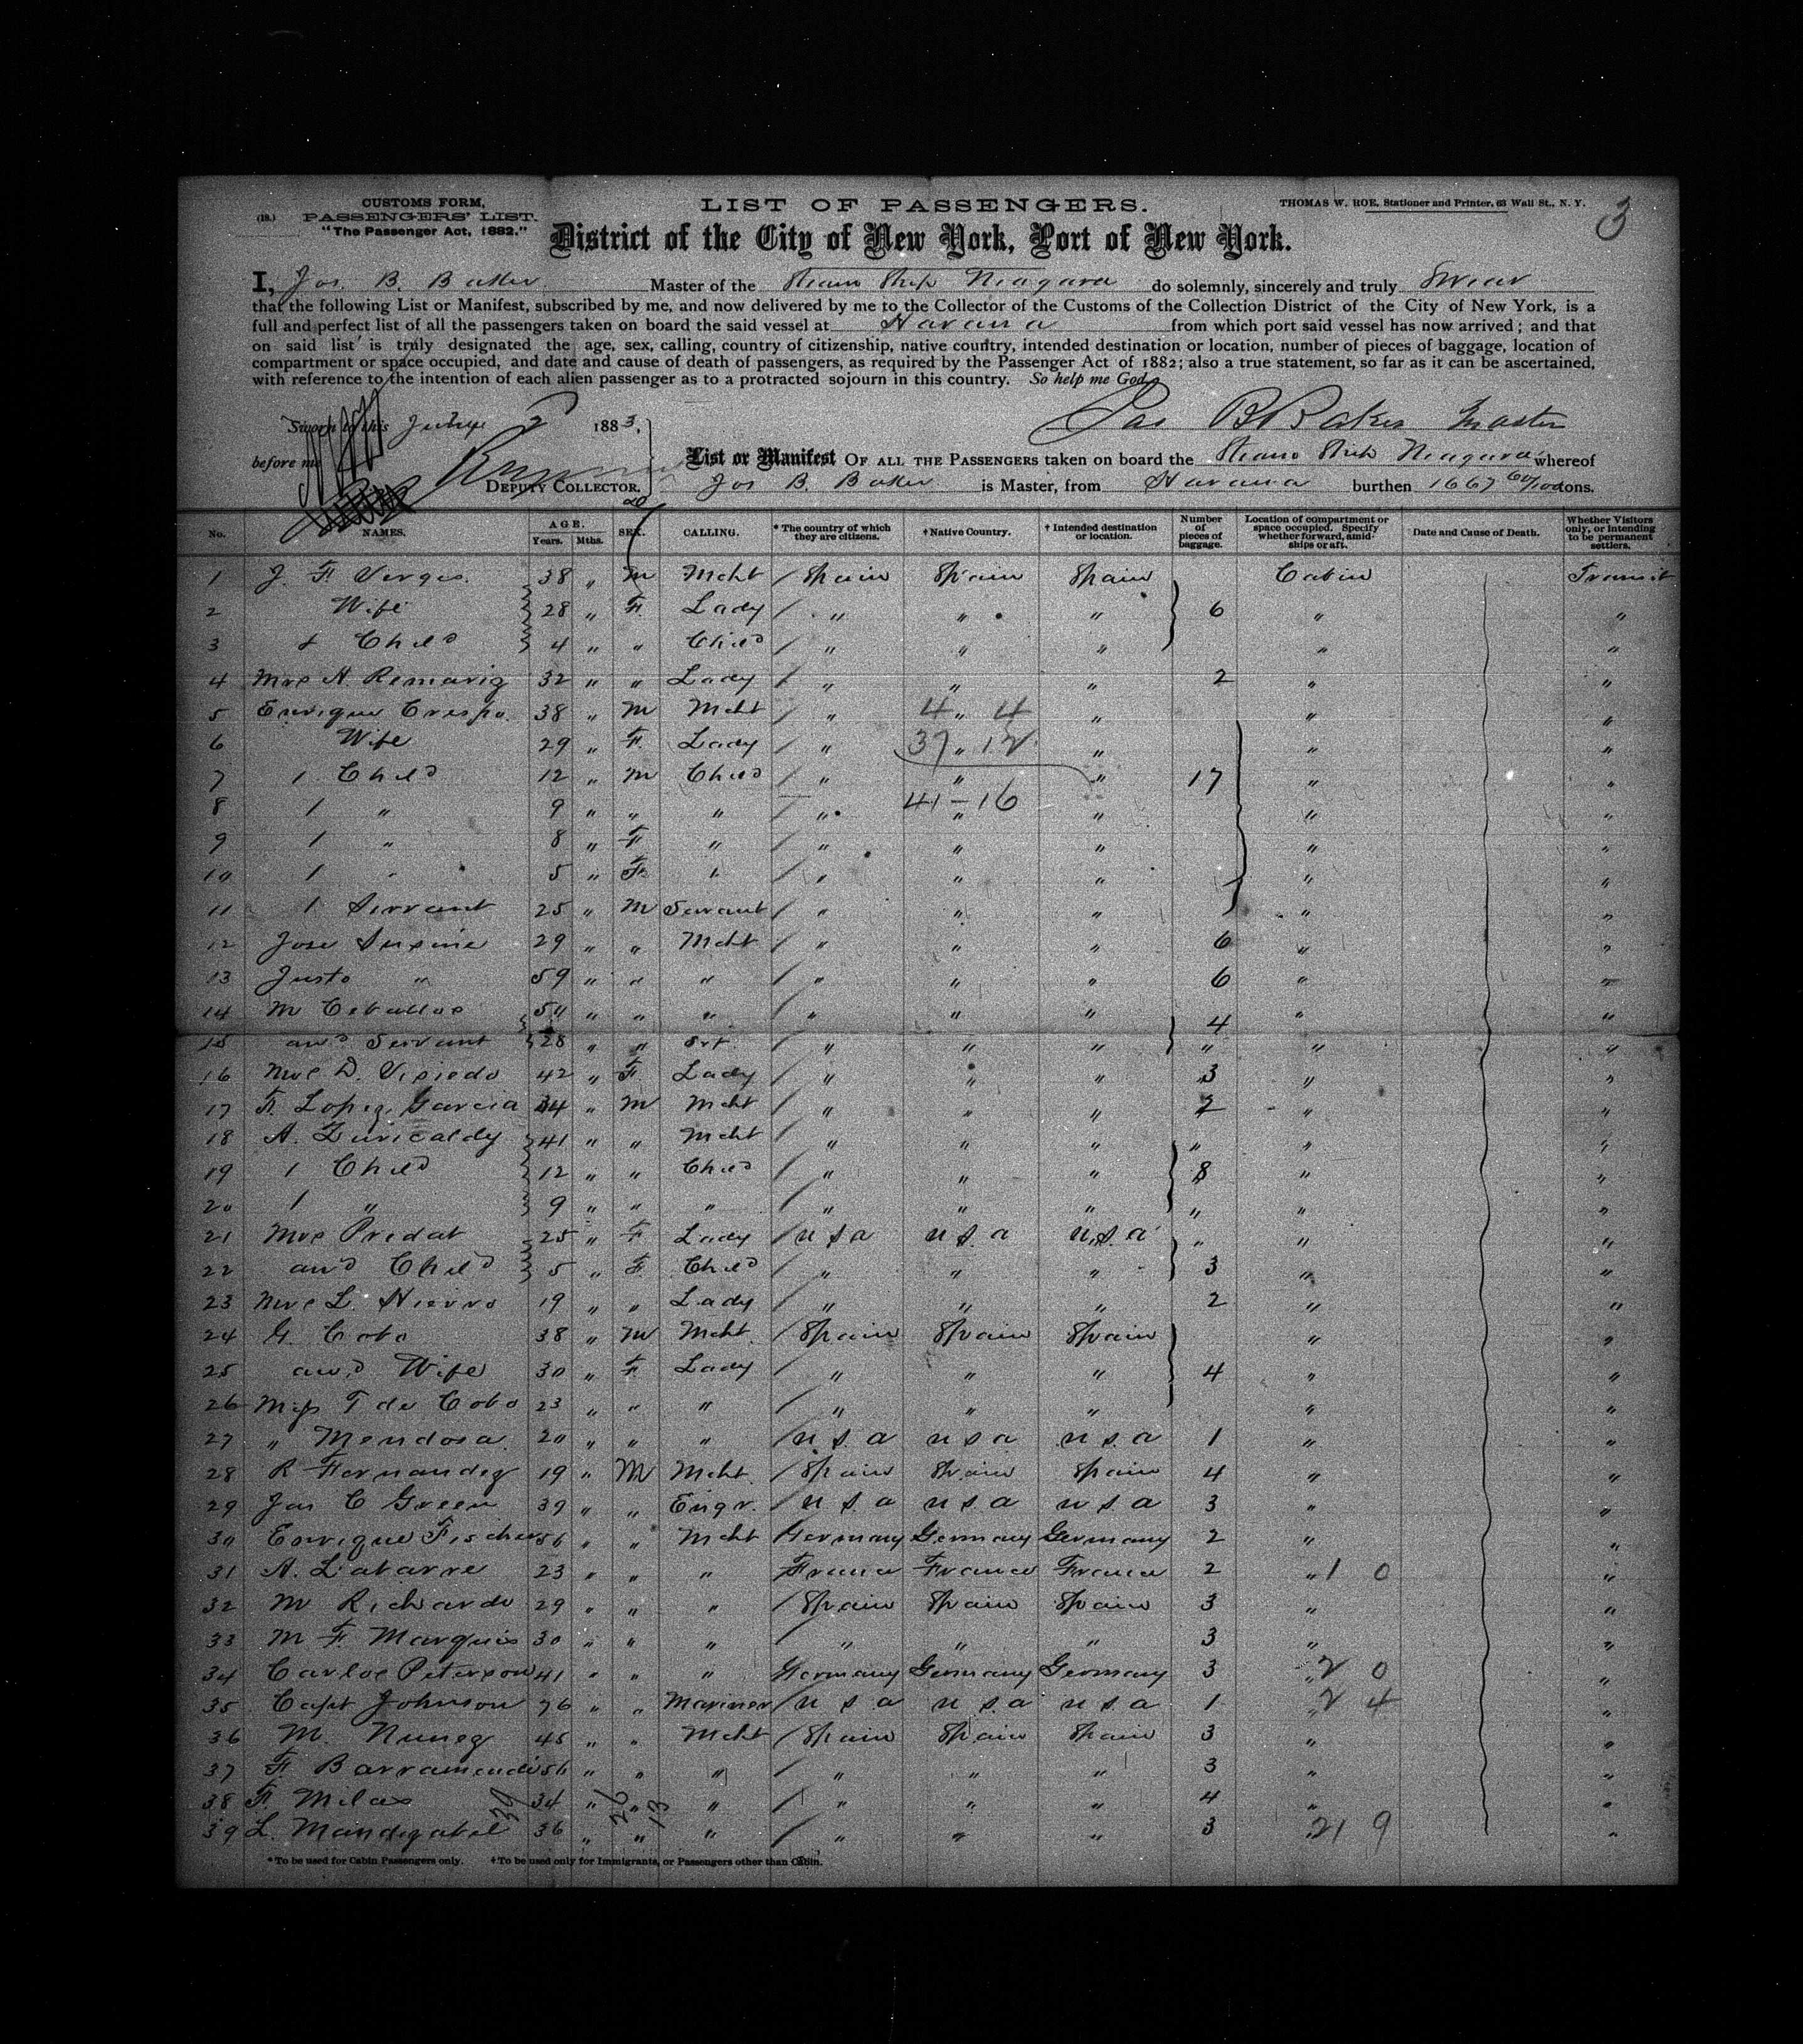 CUSTOMS FORM,
(18.) PASSENGERS' LIST.
"The Passenger Act, 1882."
LIST OF PASSENGERS.
THOMAS W. ROE, Stationer and Printer, 63 Wall St., N. Y.
3
District of the City of New York, Port of New York.
I, Jos. B. Baker Master of the Steam Ship Niagara do solemnly, sincerely and truly Swear
that the following List or Manifest, subscribed by me, and now delivered by me to the Collector of the Customs of the Collection District of the City of New York, is a
full and perfect list of all the passengers taken on board the said vessel at Havana from which port said vessel has now arrived; and that
on said list is truly designated the age, sex, calling, country of citizenship, native country, intended destination or location, number of pieces of baggage, location of
compartment or space occupied, and date and cause of death of passengers, as required by the Passenger Act of 1882; also a true statement, so far as it can be ascertained,
with reference to the intention of each alien passenger as to a protracted sojourn in this country. So help me God.
Sworn to this July 2 1883,
Jas B Baker Master
before me
DEPUTY COLLECTOR.
List or Manifest OF ALL THE PASSENGERS taken on board the Steam Ship Niagara whereof
Jos B. Baker is Master, from Havana burthen 1667 60/100 tons.
No. NAMES. AGE. Years. Mths. SEX. CALLING. * The country of which they are citizens. † Native Country. † Intended destination or location. Number of pieces of baggage. Location of compartment or space occupied. Specify whether forward, amidships or aft. Date and Cause of Death. Whether Visitors only, or intending to be permanent settlers.
1 J. F. Verges 38 " M Mcht / Spain Spain Spain Cabin Transit
2 Wife 28 " F. Lady / " " " 6 " "
3 & Child 4 " " Child / " " " " "
4 Mrs H. Remariz 32 " " Lady / " " " 2 " "
5 Enrique Crespo. 38 " M Mcht / " " " " "
4 4
6 Wife 29 " F. Lady / " " " " "
37 12
7 1 Child 12 " M Child / " " " 17 " "
8 1 " 9 " " " / " " " " "
41-16
9 1 " 8 " F " / " " " " "
10 1 " 5 " F. " / " " " " "
11 1 Servant 25 " M Servant / " " " " "
12 Jose 29 " " Mcht / " " " 6 " "
13 Justo " 59 " " " / " " " 6 " "
14 M Ceballos 50 " " " / " " " 4 " "
15 and Servant 28 " " Svt. " " " " " "
16 Mrs D. Visiedo 42 " F. Lady / " " " 3 " "
17 F. Lopez Garcia 34 " M Mcht / " " " 2 " "
18 A. Zuricaldy 41 " " Mcht / " " " " " "
19 1 Child 12 " " Child / " " " 8 " "
20 1 " 9 " " " / " " " " " "
21 Mrs Predat 25 " F Lady / U S A U S. A U.S. A " " "
22 and Child 5 " F. Child / " " " 3 " "
23 Mrs L. Hierro 19 " " Lady / " " " 2 " "
24 G. Cobo 38 " M Mcht. / Spain Spain Spain " "
25 and Wife 30 " F. Lady / " " " 4 " "
26 Miss T de Cobo 23 " " " / " " " " "
27 " Mendosa 20 " " " / U S. A U S A U S. A 1 " "
28 R Fernandez 19 " M Mcht. / Spain Spain Spain 4 " "
29 Jas C Green 39 " " Engr. / U S A U S A U S A 3 " "
30 Enrique Fischer 56 " " Mcht Germany Germany Germany 2 " "
31 A. Labarre 23 " " " France France France 2 " 1 0 "
32 M Richardo 29 " " " / Spain Spain Spain 3 " "
33 M F. Marquis 30 " " " / " " " 3 " "
34 Carlos Peterson 41 " " " Germany Germany Germany 3 " 2 0 "
35 Capt Johnson 76 " " Mariner / U S A U S A U S A 1 " 2 4 "
36 M. Nunez 45 " " Mcht / Spain Spain Spain 3 " "
37 F. Barramendi 50 " " " / " " " 3 " "
38 F. Milas 34 " " " / " " " 4 " "
39 26 13
39 L. 36 " " " / " " " 3 " 21 9 "
* To be used for Cabin Passengers only. † To be used only for Immigrants, or Passengers other than Cabin.